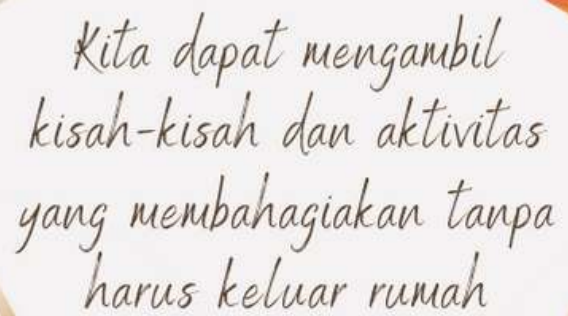 Kita dapat mengambil
kisah-kisah dan aktivitas
yang membahagiakan tanpa
harus keluar rumah